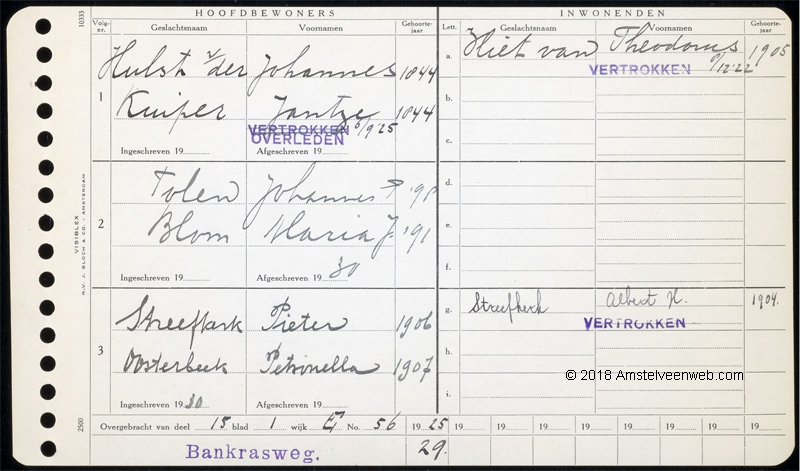 HOOFDBEWONERS
Volg-nr. Geslachtsnaam Voornamen Geboorte-jaar
Hulst v/der Johannes 1844
1
Kuiper Jantze 1844
VERTROKKEN 6/9'25
OVERLEDEN
Ingeschreven 19 Afgeschreven 19
Tolen Johannes P '91
2
Blom Maria J. '91
Ingeschreven 19 Afgeschreven 19 30
Streefkerk Pieter 1906
3
Oosterbeek Petronella 1907
Ingeschreven 1930 Afgeschreven 19
INWONENDEN
Lett. Geslachtsnaam Voornamen Geboorte-jaar
a. Hiet van Theodorus 1905
VERTROKKEN 9/12'22
b.
c.
d.
e.
f.
g. Streefkerk Albert H. 1904.
VERTROKKEN
h.
i.
© 2018 Amstelveenweb.com
Overgebracht van deel 15 blad 1 wijk E No. 56 1925 19 19 19 19 19 19 19
Bankrasweg. 29.
10333
VISIBLEX
N.V. J. BLOCH & CO. - AMSTERDAM
2500